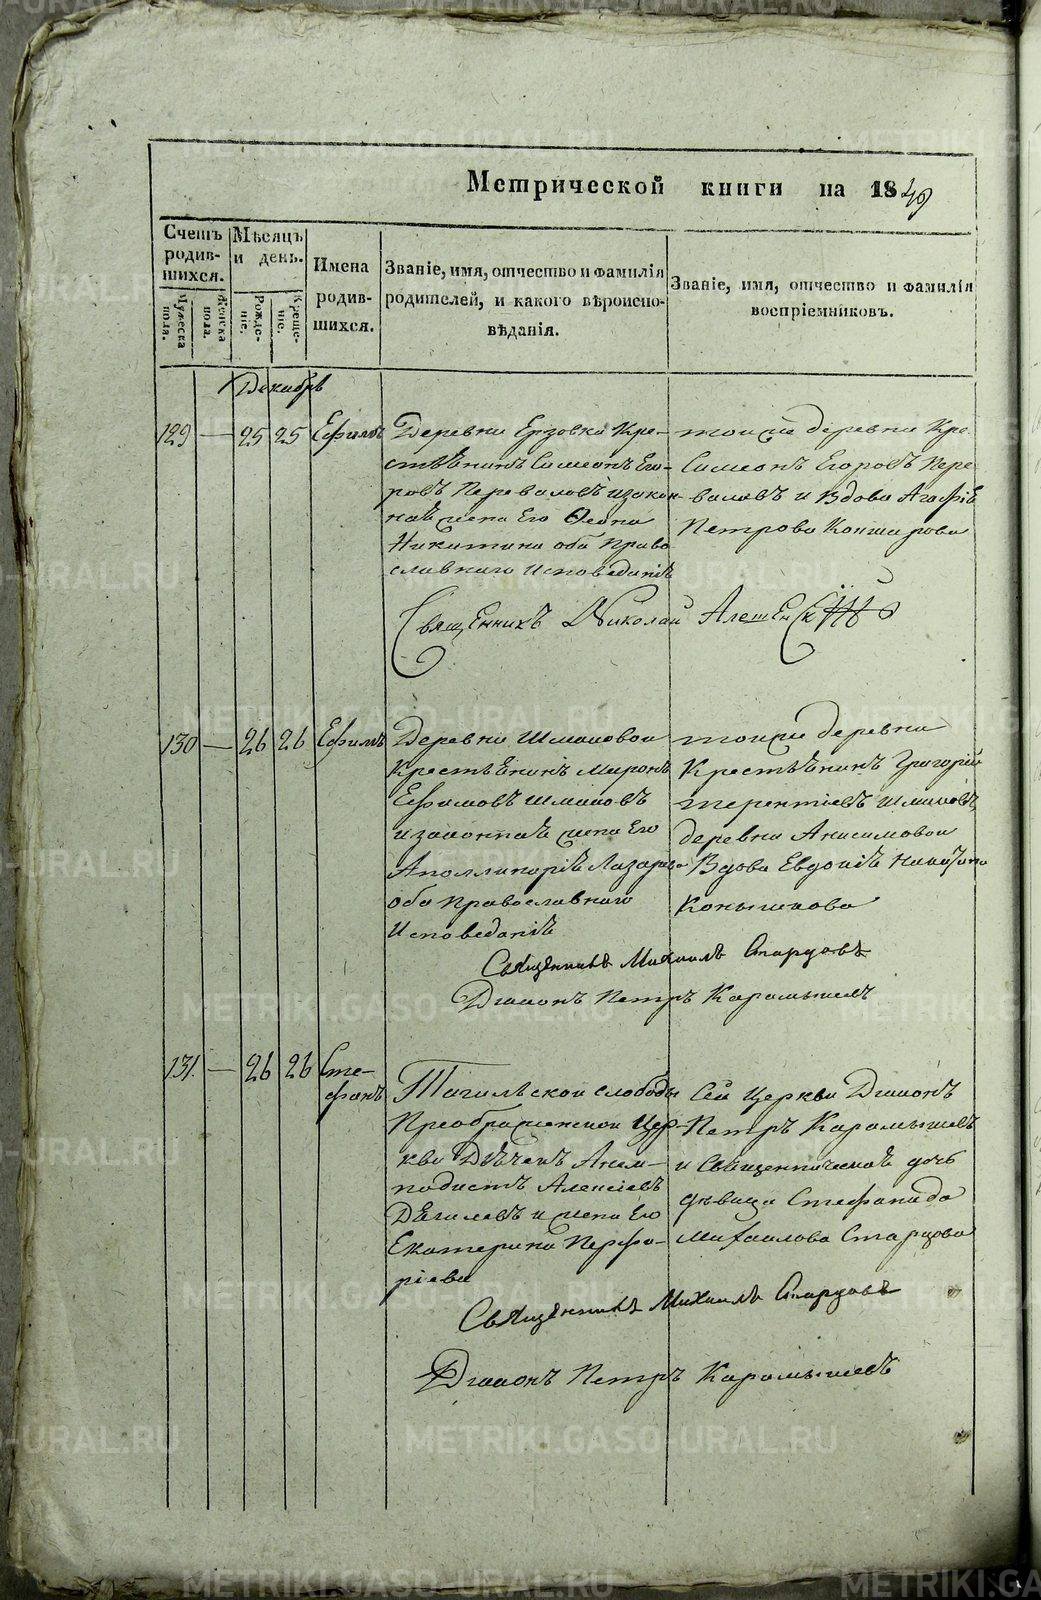 Метрической книги на 1849
Счетъ родив-шихся.
Мужеска пола.
Женска пола.
Мѣсяцъ и день.
Рожде-ніе.
Креще-ніе.
Имена родив-шихся.
Званіе, имя, отчество и фамилія
родителей, и какого вѣроиспо-
вѣданія.
Званіе, имя, отчество и фамилія
воспріемниковъ.
Декабрь
129 — 25 25 Ефимъ
Деревни Ерзовки Кре-
стьѣнинъ Симеонъ Его-
ровъ Переваловъ и закон-
наѣ жена Его Ѳеона
Никитина оба Право
славнаго Исповеданіѣ
тойже деревни Кре
Симеонъ Егоровъ Пере
валовъ и Вдова Агафіѣ
Петрова
Священникъ Николай
130 — 26 26 Ефимъ
Деревни Шмаковой
Крестьѣнинъ Миронъ
Ефимовъ Шмаковъ
и законнаѣ жена Его
Аполлинаріѣ Лазарева
оба Православнаго
Исповеданіѣ
тойже деревни
Крестьѣнинъ Григорій
Терентіевъ Шмаковъ,
деревни Анисимовой
Вдова Евдокіѣ
Конышкова
Священникъ Михаилъ Старцовъ
Діаконъ Петръ Карамышевъ
131. — 26 26 Сте-
фанъ
Тагильской слободы
Преображенской Цер-
кви Дьѣчекъ Аним-
подистъ Алексіевъ
Дѣгилевъ и жена Его
Екатерина Перфи-
ріева
Сей Церкви Діаконъ
Петръ Карамышевъ
и Священническаѣ дочь
дѣвица Стефанида
Михайлова Старцова
Священникъ Михаилъ Старцовъ
Діаконъ Петръ Карамышевъ
METRIKI.GASO-URAL.RU